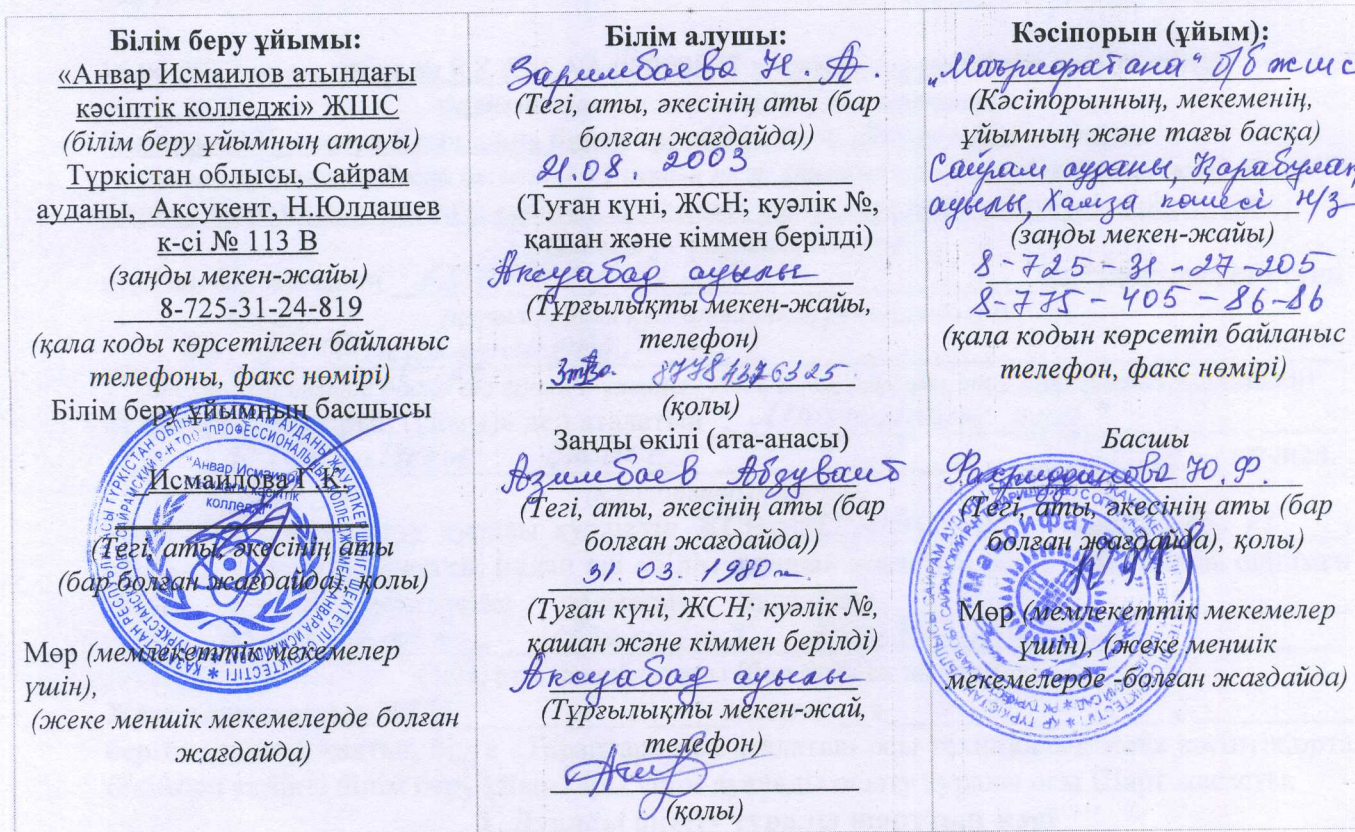 Білім беру ұйымы:
«Анвар Исмаилов атындағы
кәсіптік колледжі» ЖШС
(білім беру ұйымның атауы)
Түркістан облысы, Сайрам
ауданы, Аксукент, Н.Юлдашев
к-сі № 113 В
(заңды мекен-жайы)
8-725-31-24-819
(қала коды көрсетілген байланыс
телефоны, факс нөмірі)
Білім беру ұйымның басшысы
Исмаилова Г К.
(Тегі, аты, әкесінің аты
(бар болған жағдайда), қолы)
Мөр (мемлекеттік мекемелер
үшін),
(жеке меншік мекемелерде болған
жағдайда)
Білім алушы:
Заримбаева Н. А.
(Тегі, аты, әкесінің аты (бар
болған жағдайда))
21.08. 2003
(Туған күні, ЖСН; куәлік №,
қашан және кіммен берілді)
Аксуабад ауылы
(Тұрғылықты мекен-жайы,
телефон)
87784376325
(қолы)
Занды өкілі (ата-анасы)
Азимбаев
(Тегі, аты, әкесінің аты (бар
болған жағдайда))
31.03.1980
(Туған күні, ЖСН; куәлік №,
қашан және кіммен берілді)
Аксуабад ауылы
(Тұрғылықты мекен-жай,
телефон)
(қолы)
Кәсіпорын (ұйым):
„Маърифатана“ б/б жшс
(Кәсіпорынның, мекеменің,
ұйымның және тағы басқа)
Сайрам ауданы, Қарабулақ
ауылы, Хамза көшесі н/з
(заңды мекен-жайы)
8-725-31-27-205
8-775-405-86-86
(қала кодын көрсетіп байланыс
телефон, факс нөмірі)
Басшы
Фахриддинова Ю.Ф.
(Тегі, аты, әкесінің аты (бар
болған жағдайда), қолы)
Мөр (мемлекеттік мекемелер
үшін), (жеке меншік
мекемелерде -болған жағдайда)